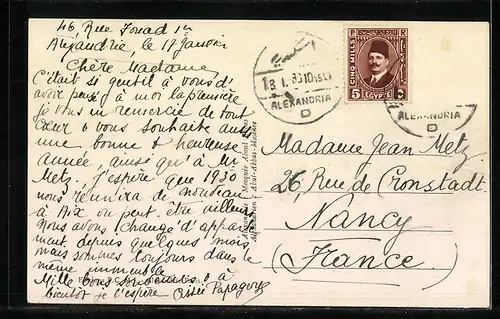 46, Rue Fouad 1er
Alexandrie, le 17 Janvier
Chère Madame
C'était si gentil à vous d'
avoir pensé à moi la première
je vous en remercie de tout
cœur & vous souhaite aussi
une bonne & heureuse
année, ainsi qu'à Mr
Metz. J'espère que 1930
nous réunira de nouveau
à Aix ou peut-être ailleurs
Nous avons changé d'appar
tement depuis quelques mois,
mais sommes toujours dans le
même immeuble
Mille bons souvenirs & à
bientôt je l'espère Papagory
ALEXANDRIA
D
CINQ MILLS
5 EGYPTE
ALEXANDRIA
D
Madame Jean Metz
26, Rue de Cronstadt
Nancy
(France)